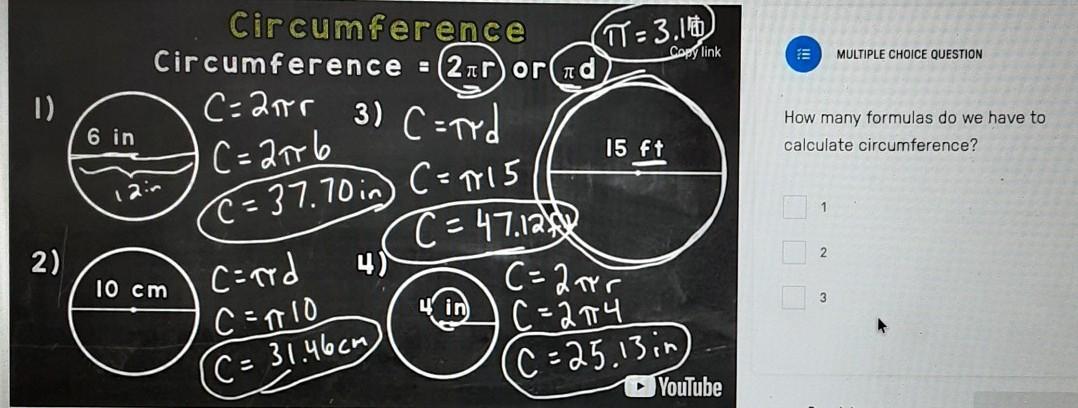 Circumference
π = 3.14
Copy link
Circumference = 2πr or πd
1)
6 in
12in
C=2πr
C=2π6
C=37.70in
3)
C=πd
C=π15
C=47.12ft
15 ft
2)
10 cm
C=πd
C=π10
C=31.46cm
4)
4 in
C=2πr
C=2π4
C=25.13in
YouTube
MULTIPLE CHOICE QUESTION
How many formulas do we have to
calculate circumference?
1
2
3